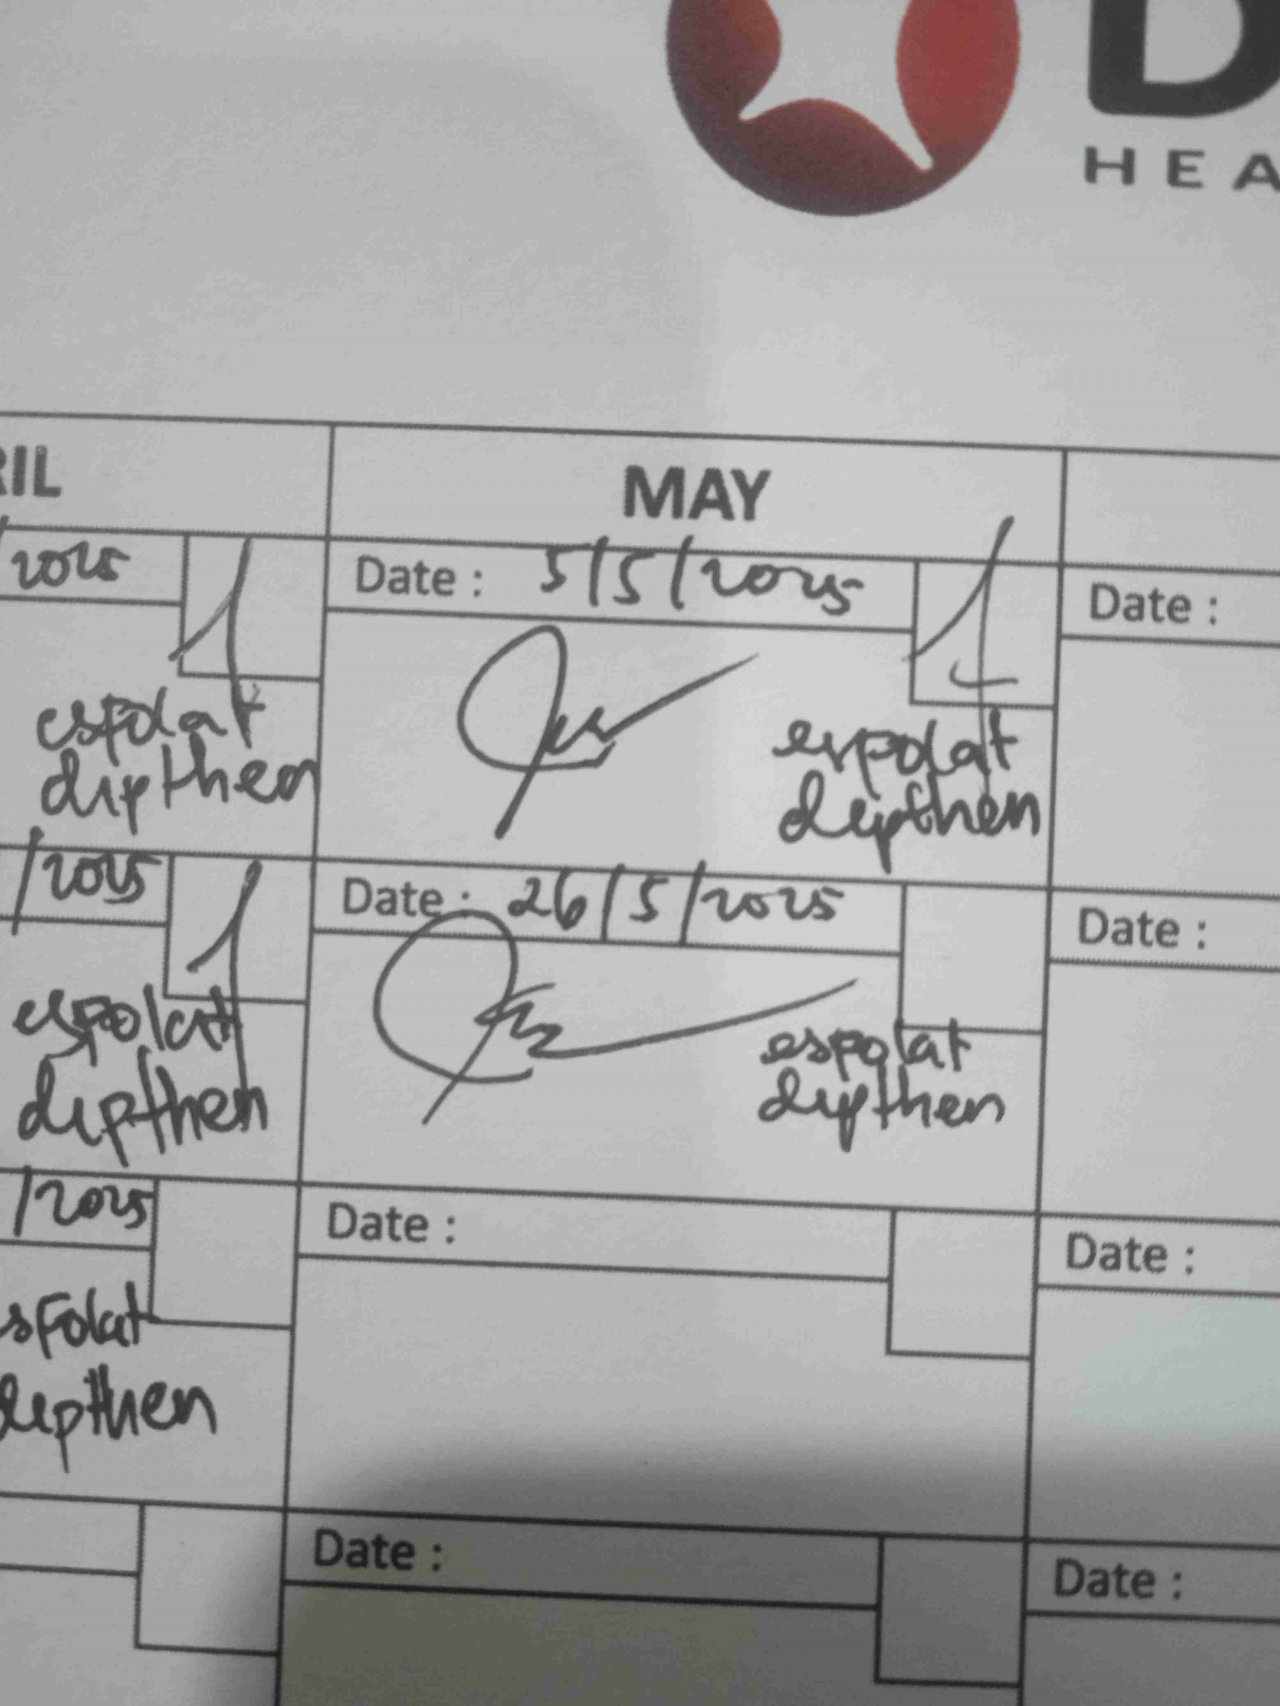 D
HEA
RIL
MAY
/2025
Date : 5/5/2025
Date :
espolat
dipthen
espolat
dipthen
/2025
Date : 26/5/2025
Date :
espolat
dipthen
espolat
dipthen
/2025
Date :
Date :
spolat
dipthen
Date :
Date :